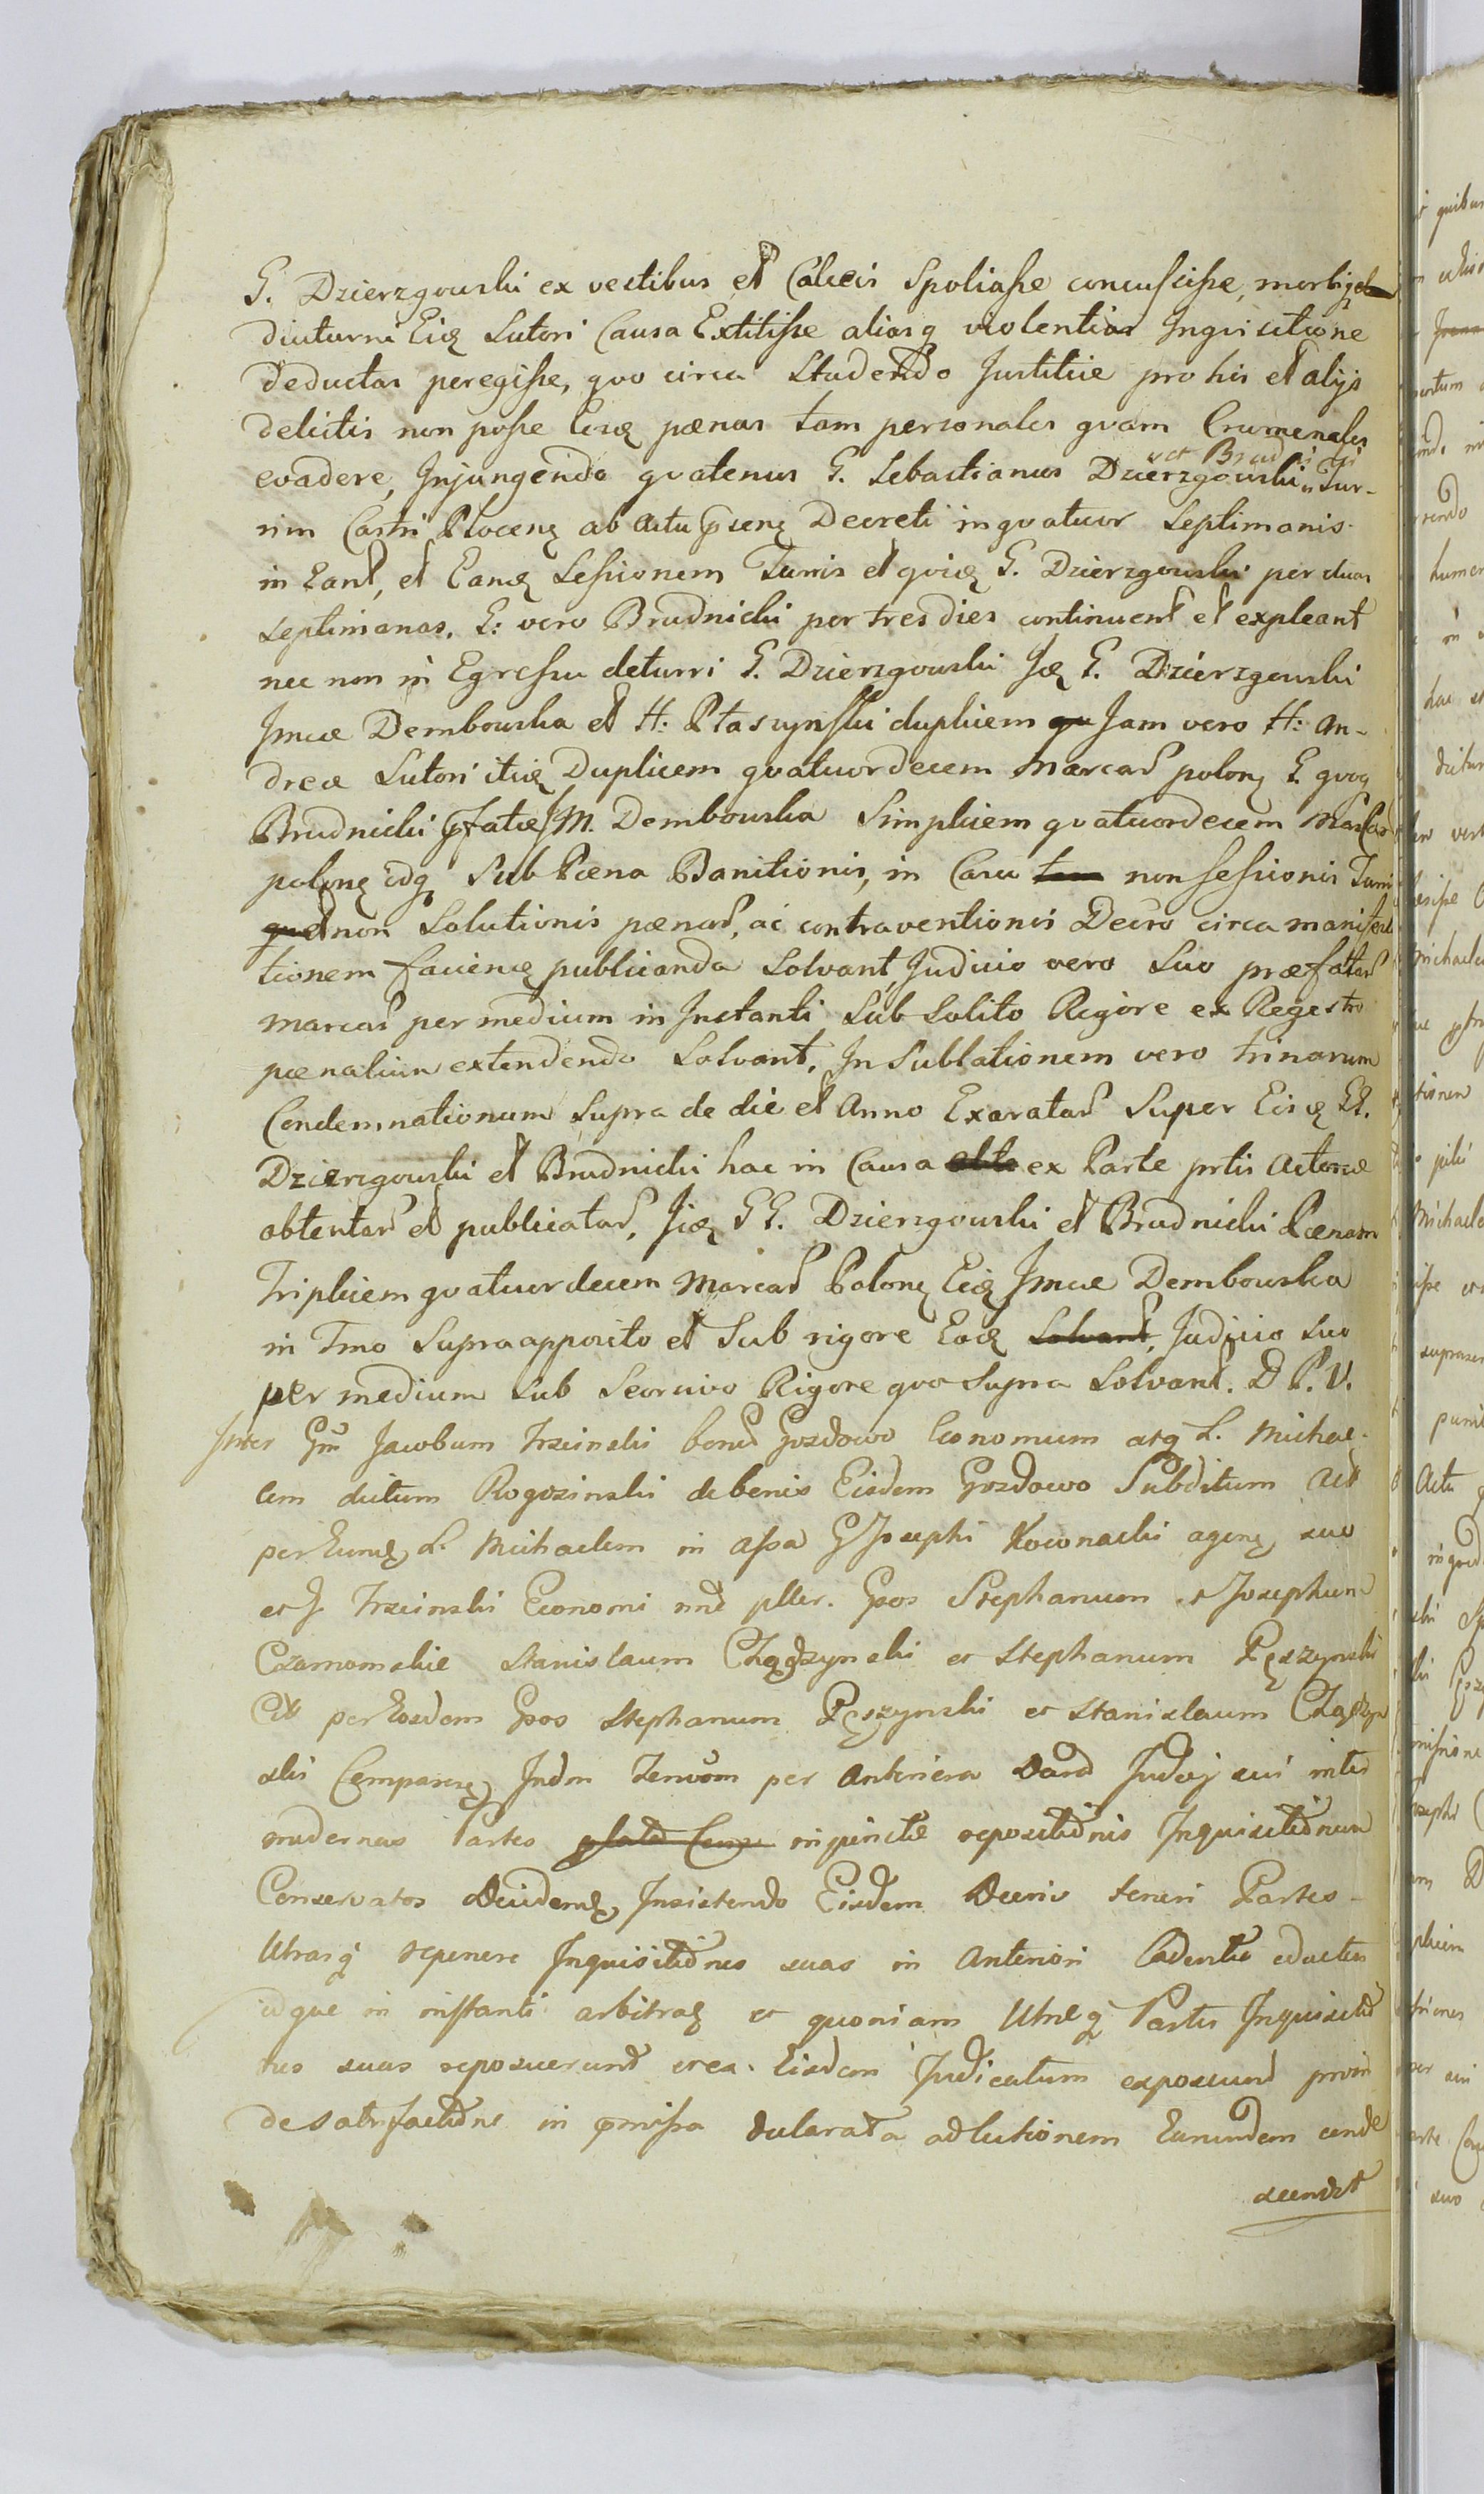 G. Dzierzgowski ex vestibus et Calceis Spoliasse concussisse, morbiq
diuturni Eidẽ Sutori Causa Extitisse aliasq violentias Inqvisitione
deductas peregisse, qvo circa Studendo Justitiæ pro his et alijs
delictis non posse Eosdẽ pœnas tam personales qvam Crumenales
evadere, Injungendo qvatenus G. Sebastianus Dzierzgowski et Brudnicki Tur-
rim Castri Plocenẽ ab actu pñsenẽ Decreti in qvatuor Septimanis
in Eant, et Eandẽ Sessionem Turris et qvidẽ G. Dzierzgowski per duas
Septimanas. G: vero Brudnicki per tres dies continuent et expleant
nec non in Egressu de turri G. Dzierzgowski Idẽ G. Dzierzgowski
Imæ Dembowska et H: Ptaszynski duplicem qu Jam vero H: An-
dreæ Sutori itidẽ Duplicem qvatuordecem Marcar polonẽ G. qvoq
Brudnicki pfatæ M. Dembowska Simplicem qvatuordecem Marcar
polonẽ idq Sub Pœna Banitionis, in Casu non sessionis Turris
et non Solutionis pœnar, ac contraventionis Decro circa manifesta
tionem faciendẽ publicanda Solvant, Judicio vero Suo præfatas
marcas per medium in Instanti Sub Solito Rigore ex Regestro
pœnalium extendendo Solvant. In Sublationem vero trinarum
Condemnationum Supra de die et Anno Exaratar Super Eisdẽ GG.
Dzierzgowski et Brudnicki hac in Causa ex Parte prtis Actoreæ
obtentar et publicatar, Iidẽ GG. Dzierzgowski et Brudnicki Pœnam
Triplicem qvatuordecem Marcar Polonẽ Eidẽ Imæ Dembowska
in Tmo Supra apposito et Sub rigore Eodẽ Solvant, Judicio Suo
per medium Sub Seorsivo Rigore qvo Supra Solvant. D. P. V.
Inter Gm Jacobum Trzcinski bonor Gozdowo Economum atq L. Michae-
lem dictum Rogozinski de bonis Eisdem Gozdowo Subditum Act
per Eundẽ L. Michaelem in assa G Josephi Kownacki agenẽ suo
et G Trzcinski Economi nnẽ pller. Gsos Stephanum et Josephum
Czarnomskie Stanislaum Chądzynski et Stephanum Pęszynski
Citt per Eosdem Gsos Stephanum Pęszynski et Stanislaum Chądzyn
ski Comparenẽ Judm Tenvom per Anteriora Dand Judij sui inter
modernas Partes injunctæ repositionis Inquisitionum
Conservatos Decidendẽ, Insistendo Eisdem Decris teneri Partes
Utrasq reponere Inquisitiones suas in Anteriori Cadentia eductas
idque in instanti arbitraẽ et quoniam Utræq Partes Inquisitio
nes suas reposuerunt erea Eisdem Judicatum exposcunt proin
de satisfactione in pmissa declarata ad lectionem Earundem conde
scendit